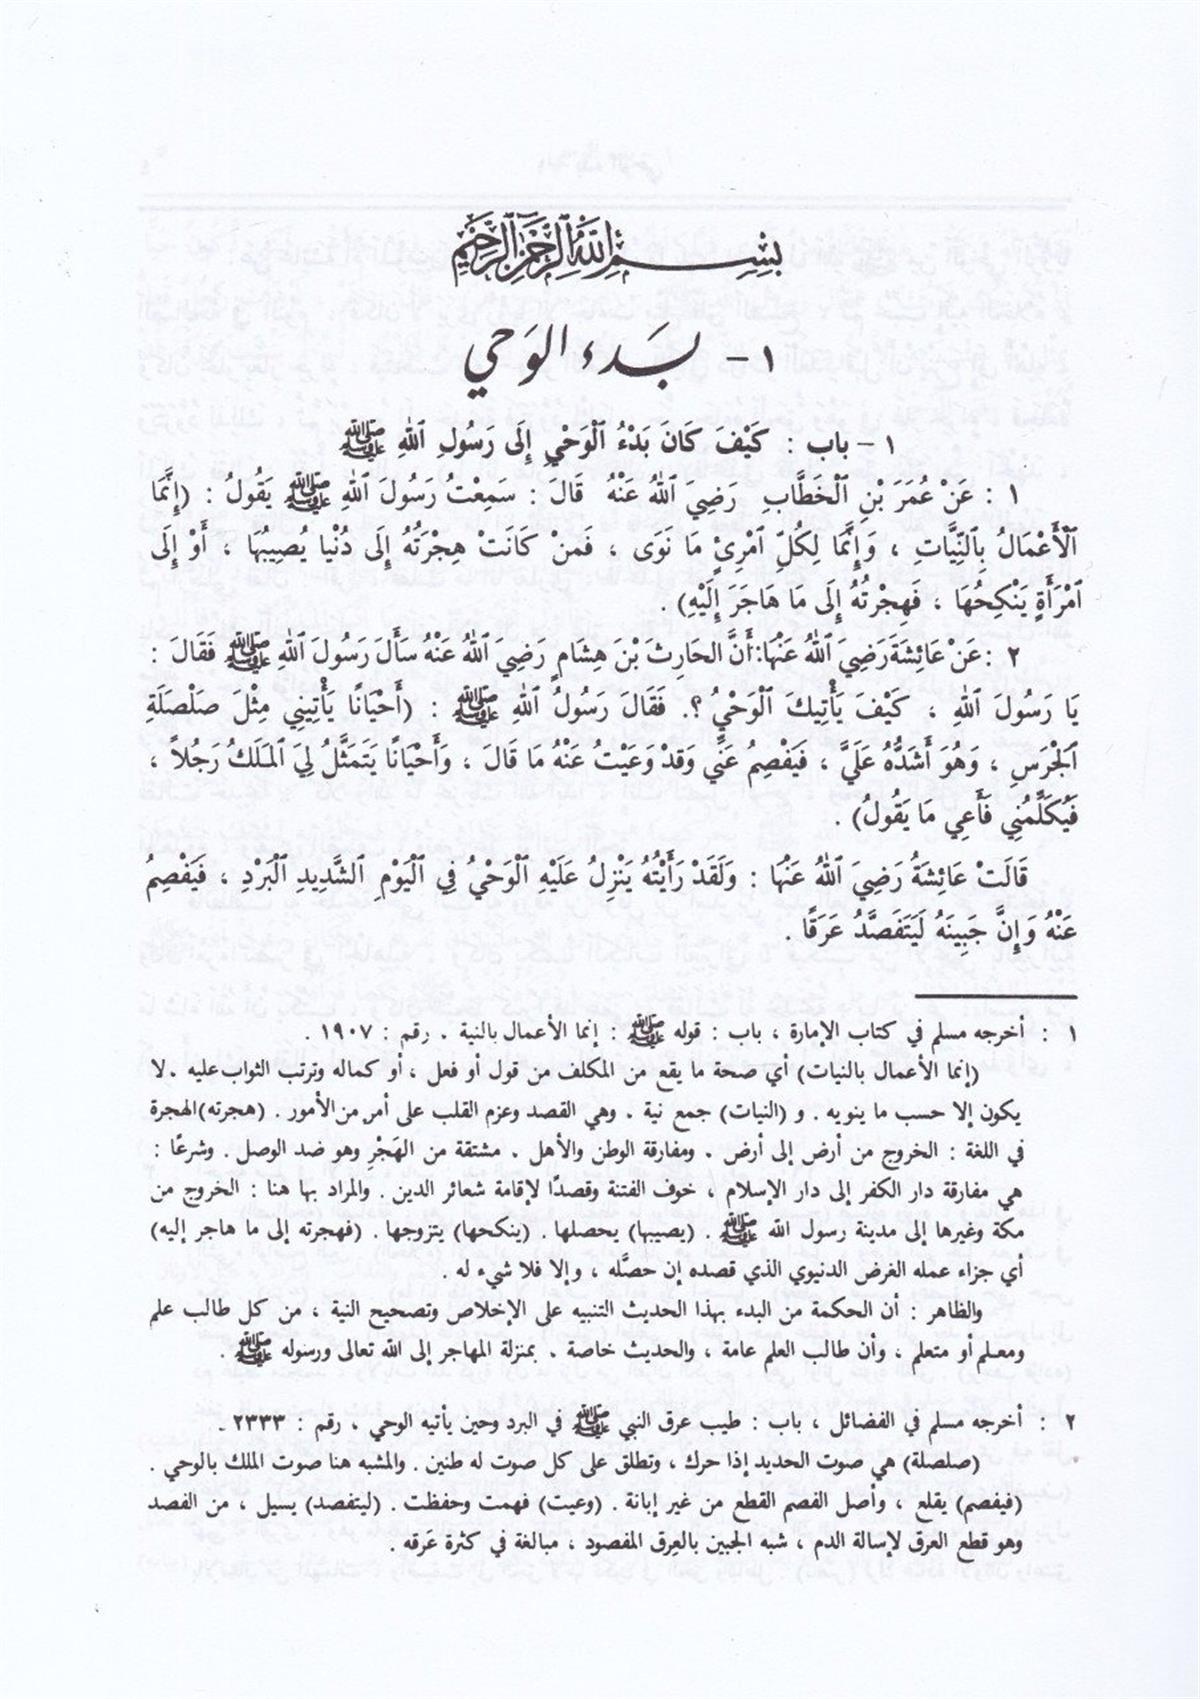 بِسْمِ اللَّهِ الرَّحْمَٰنِ الرَّحِيمِ
١ - بَدء الوَحي
١ - باب : كَيْفَ كَانَ بَدْءُ ٱلْوَحْيِ إِلَى رَسُولِ ٱللهِ ﷺ
١ : عَنْ عُمَرَ بْنِ ٱلْخَطَّابِ رَضِيَ ٱللهُ عَنْهُ قَالَ : سَمِعْتُ رَسُولَ ٱللهِ ﷺ يَقُولُ : (إِنَّمَا
ٱلْأَعْمَالُ بِالنِّيَّاتِ ، وَإِنَّمَا لِكُلِّ ٱمْرِئٍ مَا نَوَى ، فَمَنْ كَانَتْ هِجْرَتُهُ إِلَى دُنْيَا يُصِيبُهَا ، أَوْ إِلَى
ٱمْرَأَةٍ يَنْكِحُهَا ، فَهِجْرَتُهُ إِلَى مَا هَاجَرَ إِلَيْهِ) .
٢ : عَنْ عَائِشَةَ رَضِيَ ٱللهُ عَنْهَا: أَنَّ الحَارِثَ بْنَ هِشَامٍ رَضِيَ ٱللهُ عَنْهُ سَأَلَ رَسُولَ ٱللهِ ﷺ فَقَالَ :
يَا رَسُولَ ٱللهِ ، كَيْفَ يَأْتِيكَ ٱلْوَحْيُ ؟. فَقَالَ رَسُولُ ٱللهِ ﷺ : (أَحْيَانًا يَأْتِينِي مِثْلَ صَلْصَلَةِ
ٱلْجَرَسِ ، وَهُوَ أَشَدُّهُ عَلَيَّ ، فَيَفْصِمُ عَنِّي وَقَدْ وَعَيْتُ عَنْهُ مَا قَالَ ، وَأَحْيَانًا يَتَمَثَّلُ لِيَ ٱلْمَلَكُ رَجُلاً ،
فَيُكَلِّمُنِي فَأَعِي مَا يَقُولُ) .
قَالَتْ عَائِشَةُ رَضِيَ ٱللهُ عَنْهَا : وَلَقَدْ رَأَيْتُهُ يَنْزِلُ عَلَيْهِ ٱلْوَحْيُ فِي ٱلْيَوْمِ ٱلشَّدِيدِ ٱلْبَرْدِ ، فَيَفْصِمُ
عَنْهُ وَإِنَّ جَبِينَهُ لَيَتَفَصَّدُ عَرَقًا .
١ : أخرجه مسلم في كتاب الإمارة ، باب : قوله ﷺ : إنما الأعمال بالنية . رقم : ١٩٠٧ .
(إنما الأعمال بالنيات) أي صحة ما يقع من المكلف من قول أو فعل ، أو كماله وترتب الثواب عليه . لا
يكون إلا حسب ما ينويه . و (النيات) جمع نية . وهي القصد وعزم القلب على أمر من الأمور . (هجرته) الهجرة
في اللغة : الخروج من أرض إلى أرض . ومفارقة الوطن والأهل . مشتقة من الهَجْرِ وهو ضد الوصل . وشرعًا :
هي مفارقة دار الكفر إلى دار الإسلام ، خوف الفتنة وقصدًا لإقامة شعائر الدين . والمراد بها هنا : الخروج من
مكة وغيرها إلى مدينة رسول الله ﷺ . (يصيبها) يحصلها . (ينكحها) يتزوجها . (فهجرته إلى ما هاجر إليه)
أي جزاء عمله الغرض الدنيوي الذي قصده إن حصَّله ، وإلا فلا شيء له .
والظاهر : أن الحكمة من البدء بهذا الحديث التنبيه على الإخلاص وتصحيح النية ، من كل طالب علم
ومعلم أو متعلم ، وأن طالب العلم عامة ، والحديث خاصة . بمنزلة المهاجر إلى الله تعالى ورسوله ﷺ .
٢ : أخرجه مسلم في الفضائل ، باب : طيب عرق النبي ﷺ في البرد وحين يأتيه الوحي ، رقم : ٢٣٣٣ .
(صلصلة) هي صوت الحديد إذا حرك ، وتطلق على كل صوت له طنين . والمشبه هنا صوت الملك بالوحي .
(فيفصم) يقلع ، وأصل الفصم القطع من غير إبانة . (وعيت) فهمت وحفظت . (ليتفصد) يسيل ، من الفصد
وهو قطع العرق لإسالة الدم ، شبه الجبين بالعِرق المفصود ، مبالغة في كثرة عَرقه .